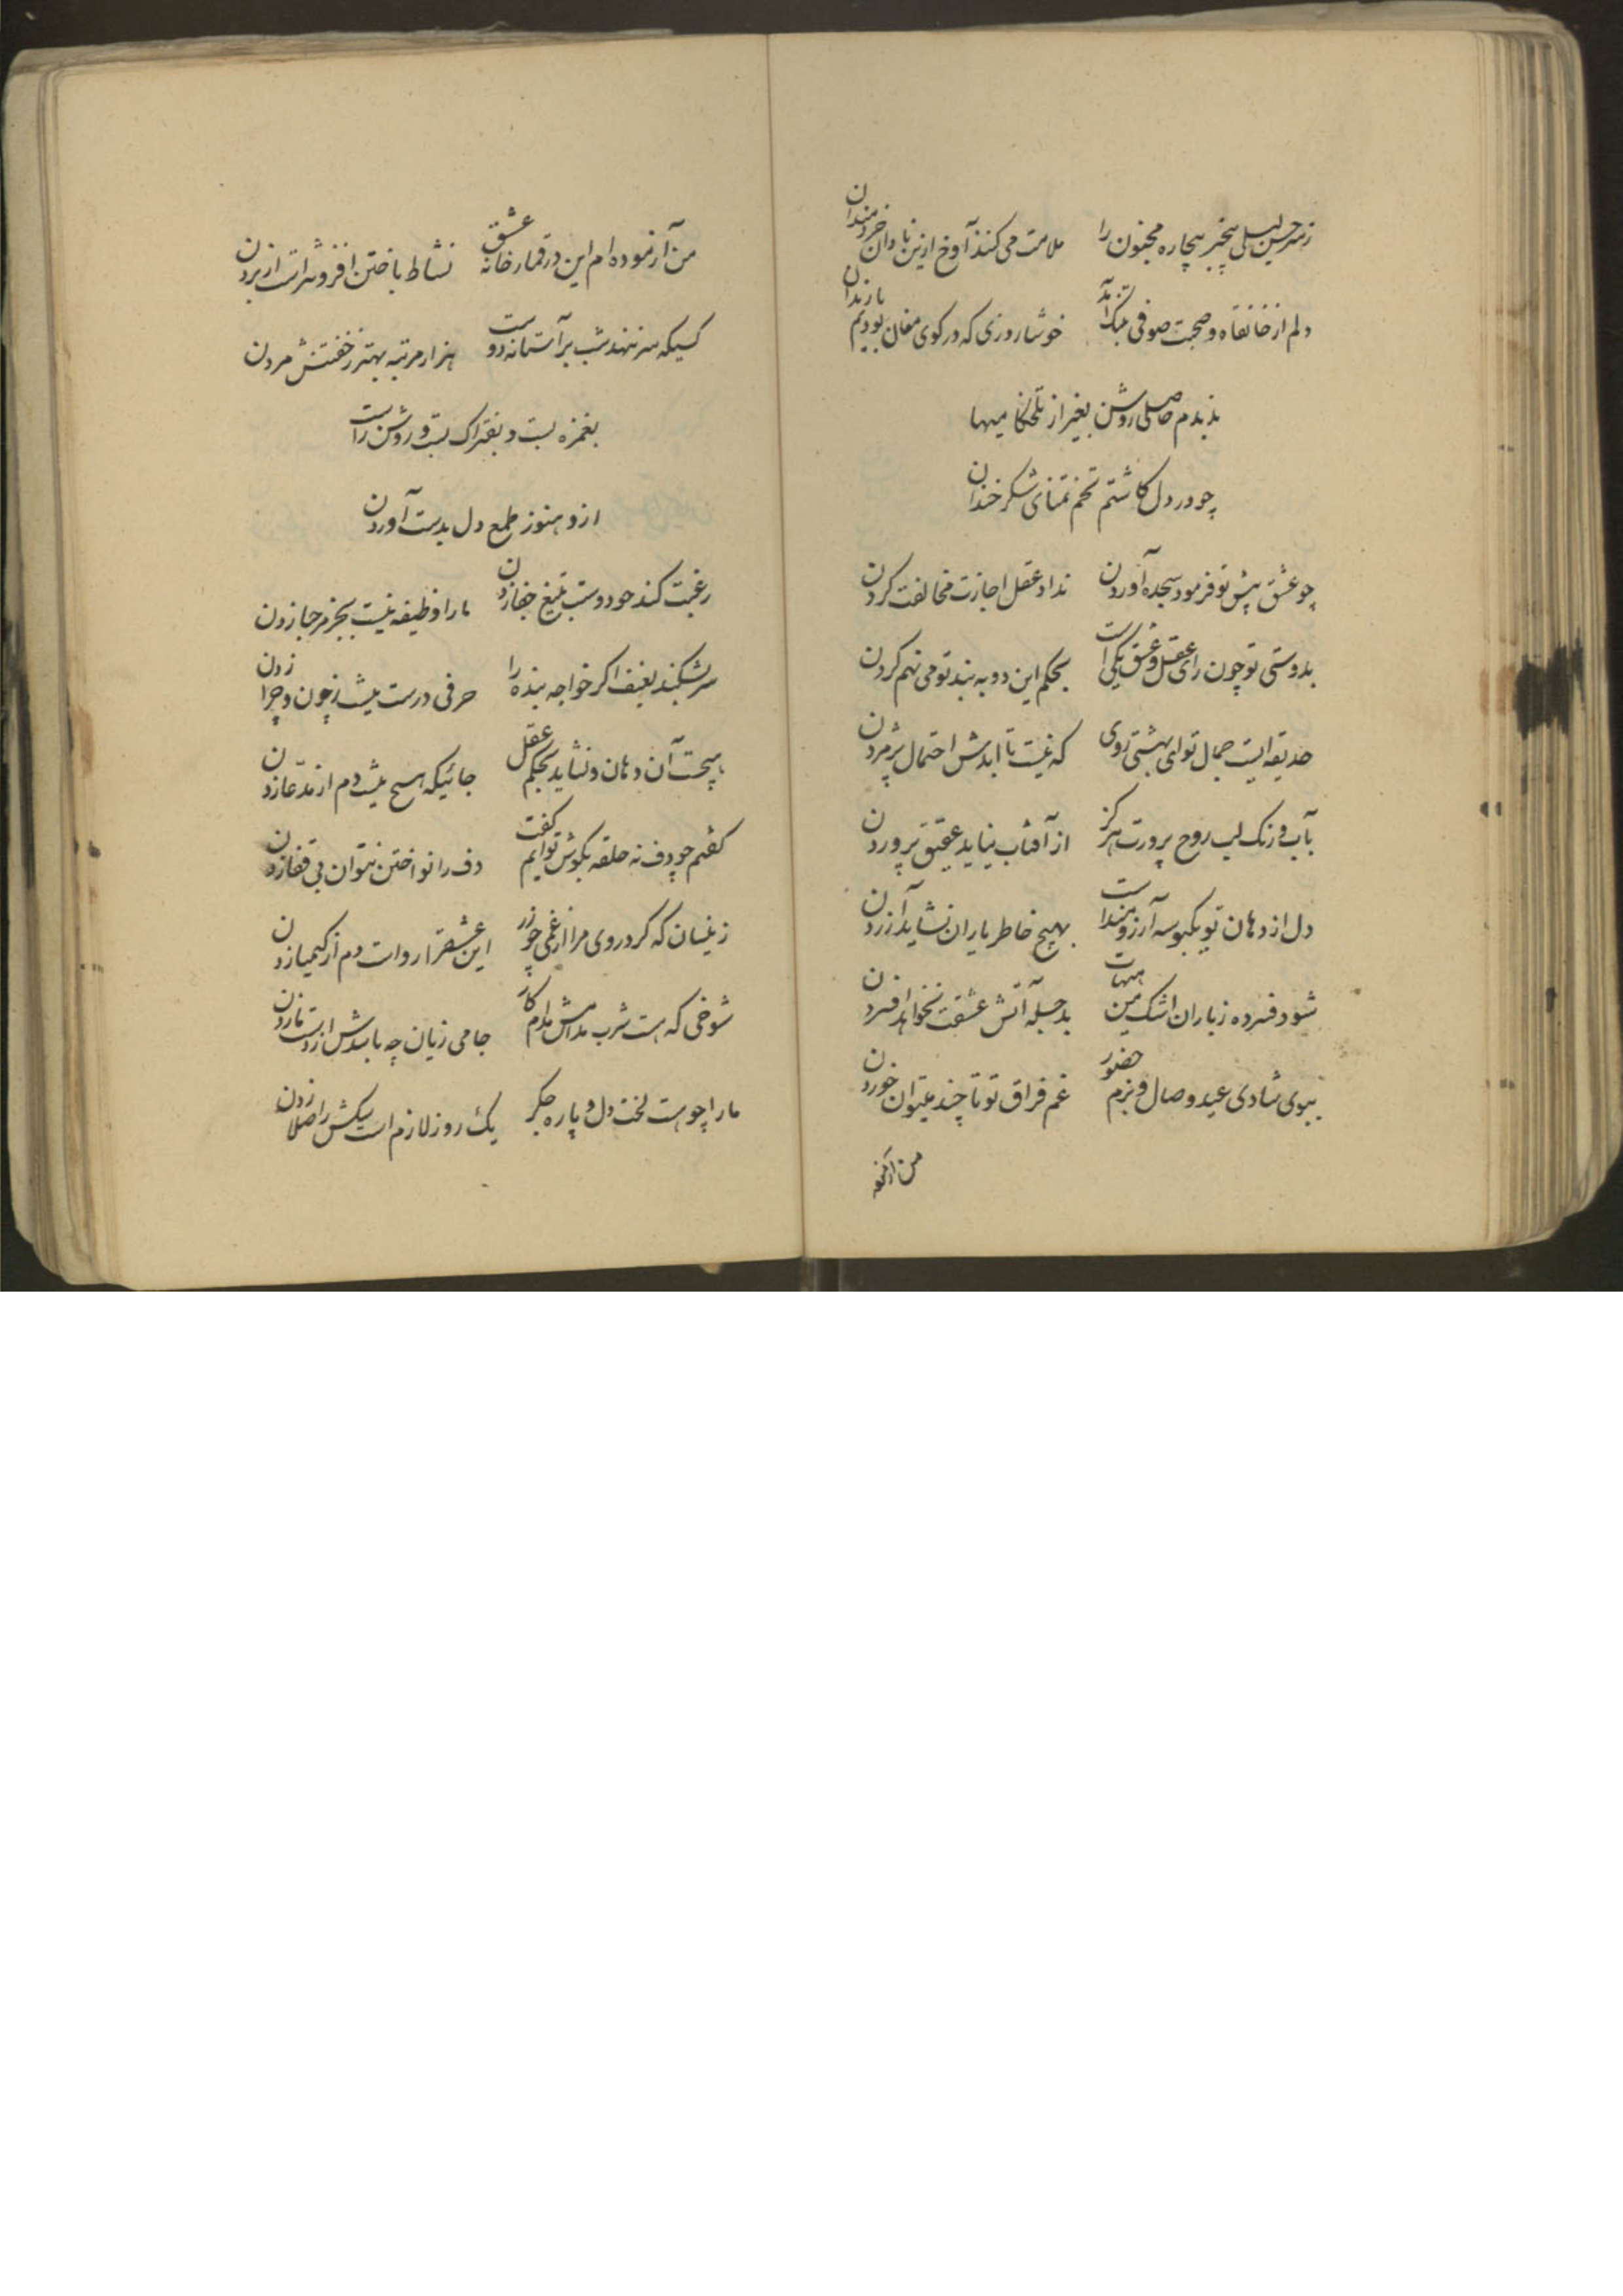 ز سر حسن لیلی بیخبر بیچاره مجنون را ملامت می کنند آوخ ازین نادان خردمندان
دلم از خانقاه و صحبت صوفی بتنگ آمد خوشا روزی که در کوی مغان بودیم با رندان
ندیدم حاصلی روشن بغیر از تلخکامیها
چو در دل کاشتم تخم تمنای شکر خندان
چو عشق پیش تو فرمود سجده آوردن نداد عقل اجازت مخالفت کردن
بدوستی تو چون رای عقل و عشق یکی است بحکم این دو به بند تو می نهم کردن
حدیقه ایست جمال تو ای بهشتی روی که نیست تا ابدش احتمال پژمردن
بآب و رنک لب روح پرورت هرکز از آفتاب نیاید عقیق پروردن
دل از دهان تو یکبوسه آرزومند است بهیچ خاطر یاران نشاید آزردن
شود فسرده ز باران اشک من هیهات بدجله آتش عشقت نخواهد افسردن
ببوی شادی عید وصال و بزم حضور غم فراق تو تا چند میتوان خوردن
من آزمو
من آزموده ام این در قمارخانه عشق نشاط باختن افزونتر است از بردن
کسیکه سر ننهد شب بر آستانه دوست هزار مرتبه بهتر ز خفتنش مردن
بغمزه بست و بفتراک بست و روشن راست
ازو هنوز طمع دل بدست آوردن
رغبت کند چو دوست بتیغ جفا زدن ما را وظیفه نیست بجز مرحبا زدن
سر بشکند بعنف اکر خواجه بنده را حرفی درست نیست ز چون و چرا زدن
هیچست آن دهان و نشاید بحکم عقل جائیکه هیچ نیست دم از مدّعا زدن
کفتم چو دف نه حلقه بکوش توایم کفت دف را نواختن نتوان بی قفا زدن
زینسان که کرد روی مرا از غمی چو زر این عشق را رواست دم از کیمیا زدن
شوخی که هست شرب مدامش مدام کار جامی زیان چه باشدش از دست ما زدن
ما را چو هست لخت دل و پاره جکر یک روز لازم است سکش را صلا زدن